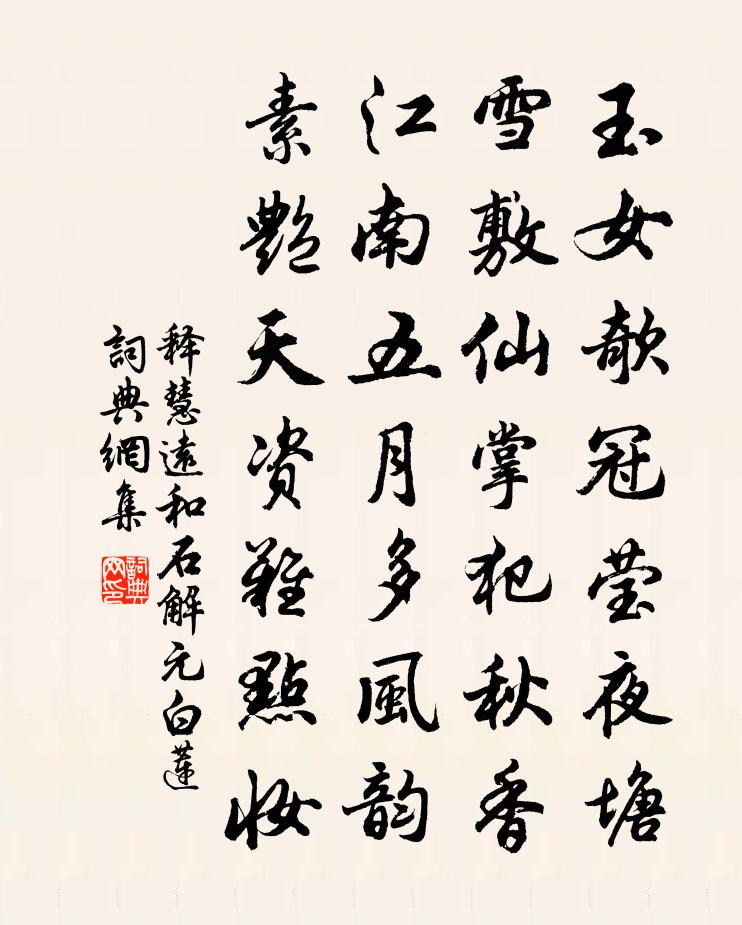 玉女欹冠莹夜塘
雪敷仙掌犯秋香
江南五月多風韵
素艷天资難點妆
释慧遠和石解元白蓮
詞典網集
詞典网印